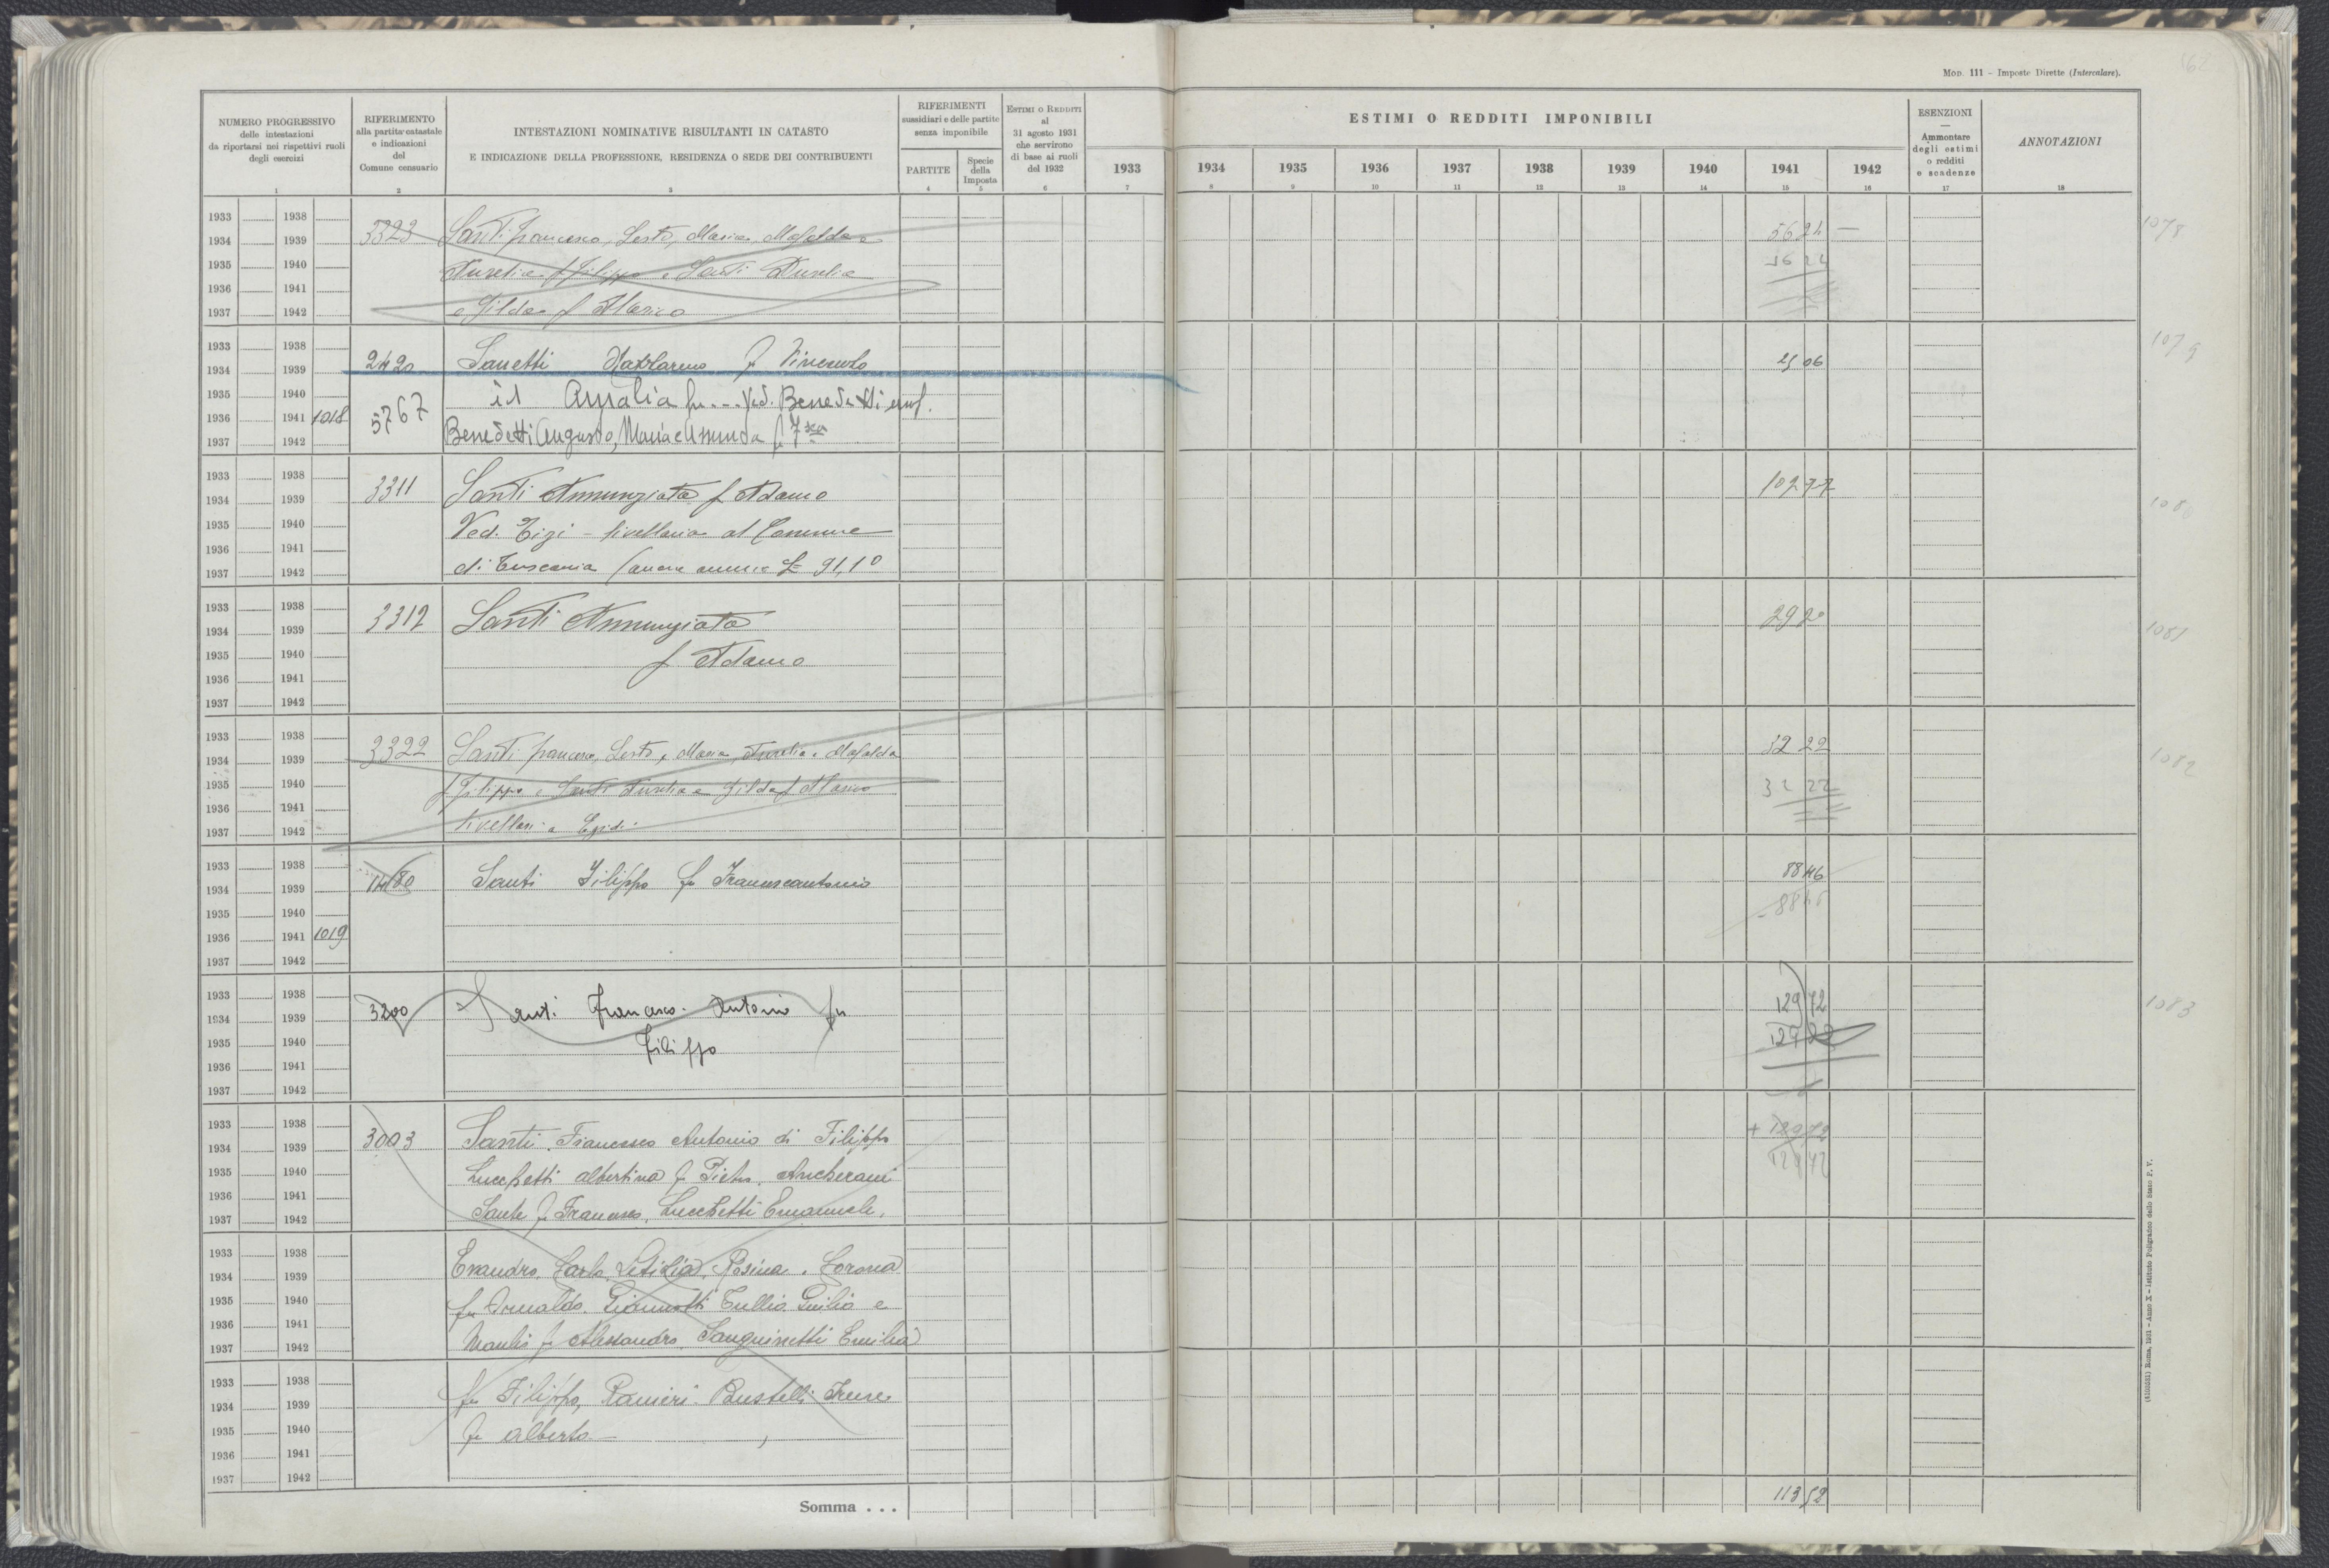 162
Mod. 111 - Imposte Dirette (Intercalare).
NUMERO PROGRESSIVO
delle intestazioni
da riportarsi nei rispettivi ruoli
degli esercizi
RIFERIMENTO
alla partita catastale
e indicazioni
del
Comune censuario
INTESTAZIONI NOMINATIVE RISULTANTI IN CATASTO
E INDICAZIONE DELLA PROFESSIONE, RESIDENZA O SEDE DEI CONTRIBUENTI
RIFERIMENTI
sussidiari e delle partite
senza imponibile
PARTITE
Specie
della
Imposta
ESTIMI O REDDITI
al
31 agosto 1931
che servirono
di base ai ruoli
del 1932
ESTIMI O REDDITI IMPONIBILI
1933 1934 1935 1936 1937 1938 1939 1940 1941 1942
ESENZIONI
—
Ammontare
degli estimi
o redditi
e scadenze
ANNOTAZIONI
1 2 3 4 5 6 7 8 9 10 11 12 13 14 15 16 17 18
1933 1938
1934 1939 3323 Santi Francesco, Sesto, Maria, Mafalda e 56 24 — 1078
1935 1940 Aurelia f Filippo e Santi Aurelia 56 24
1936 1941
1937 1942 e Gilda f Alarico
1933 1938
1934 1939 2420 Sanetti Nazzareno f Vincenzo 25 06 1079
1935 1940 id Amalia fu --- Ved. Benedetti usuf.
1936 1941 1018 5767
1937 1942 Benedetti Augusto, Maria e Assunta f
1933 1938
1934 1939 3311 Santi Annunziata f Adamo 102 77 1080
1935 1940 Ved. Tizi - livellaria al Comune
1936 1941
1937 1942 di Tuscania (canone annuo £ 91,10
1933 1938
1934 1939 3312 Santi Annunziata 29 20 1081
1935 1940 f Adamo
1936 1941
1937 1942
1933 1938
1934 1939 3322 Santi Francesco, Sesto, Maria, Aurelia e Mafalda 32 22 1082
1935 1940 f Filippo e Santi Aurelia e Gilda f Alarico 32 22
1936 1941
1937 1942 livellari a Egidi
1933 1938
1934 1939 1480 Santi Filippo fu Francescantonio 88 46
1935 1940 - 88 46
1936 1941 1019
1937 1942
1933 1938
1934 1939 3200 Santi Francesco Antonio fu 129 72 1083
1935 1940 Filippo
1936 1941
1937 1942
1933 1938
1934 1939 3003 Santi Francesco Antonio di Filippo + 129 72
1935 1940 Lucchetti Albertina f Pietro, Ancherani 129 72
1936 1941
1937 1942 Sante f Francesco, Lucchetti Emanuele,
1933 1938
1934 1939 Evandro, Carlo, Letizia, Rosina,
1935 1940 Giannotti Tullio Giulio e
1936 1941
1937 1942 Manlio f Alessandro, Sanguinetti Emilia
1933 1938
1934 1939 fu Filippo, Ranieri Bustelli Irene
1935 1940 fu Alberto
1936 1941
1937 1942
Somma . . . 113 52
(4100681) Roma, 1931 - Anno X - Istituto Poligrafico dello Stato P. V.